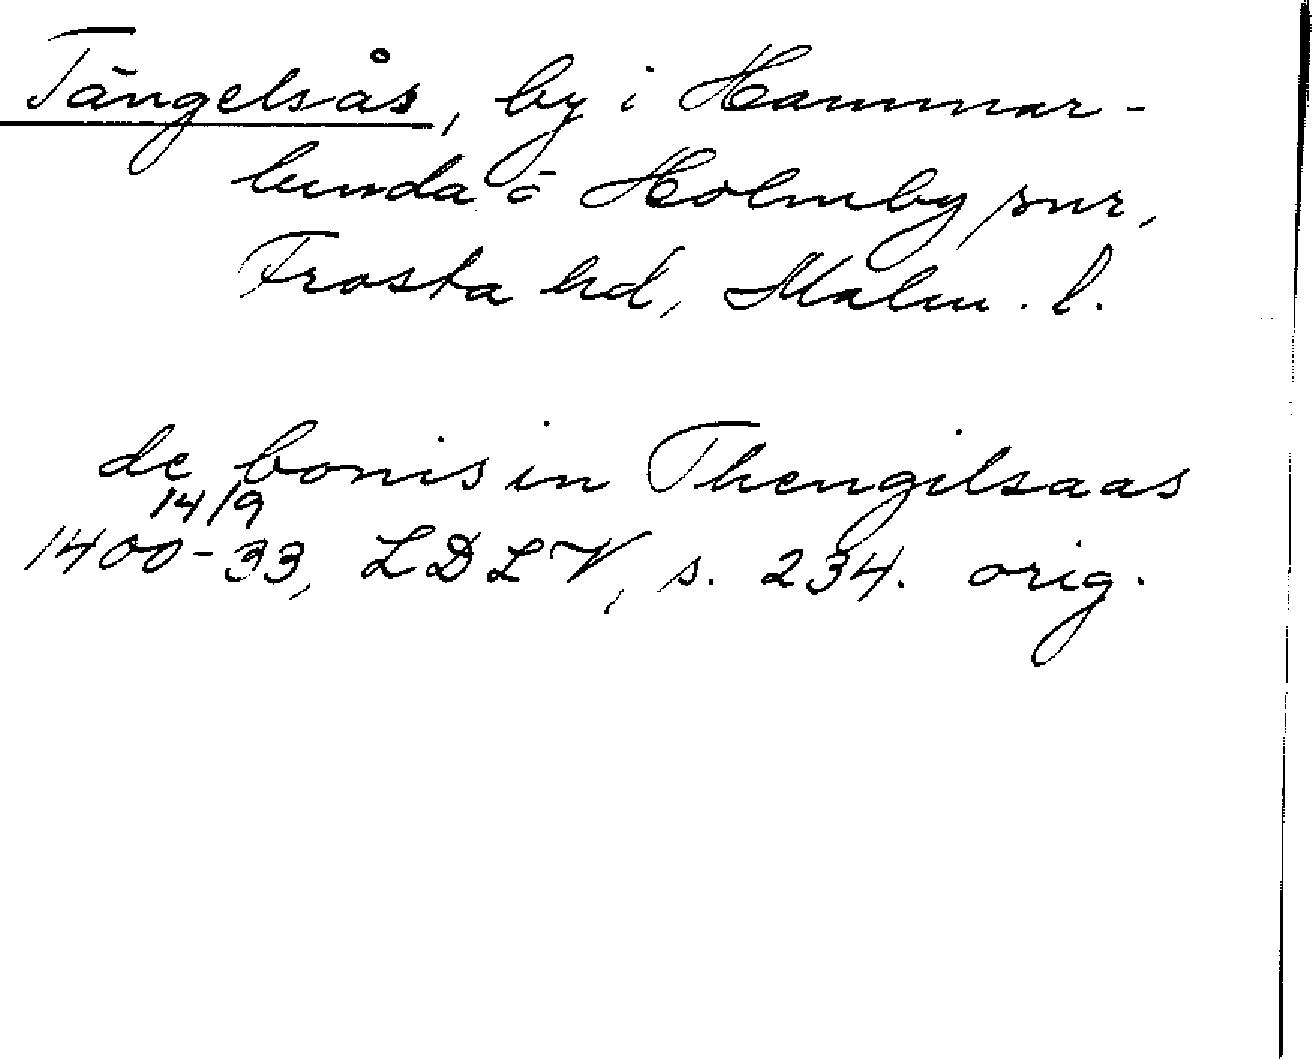 Tängelsås, by i Hammar-
lunda o Holmby snr,
Frosta hd, Malm. l.
de bonis in Thengilsaas
14/9
1400-33, LDLV, s. 234. orig.